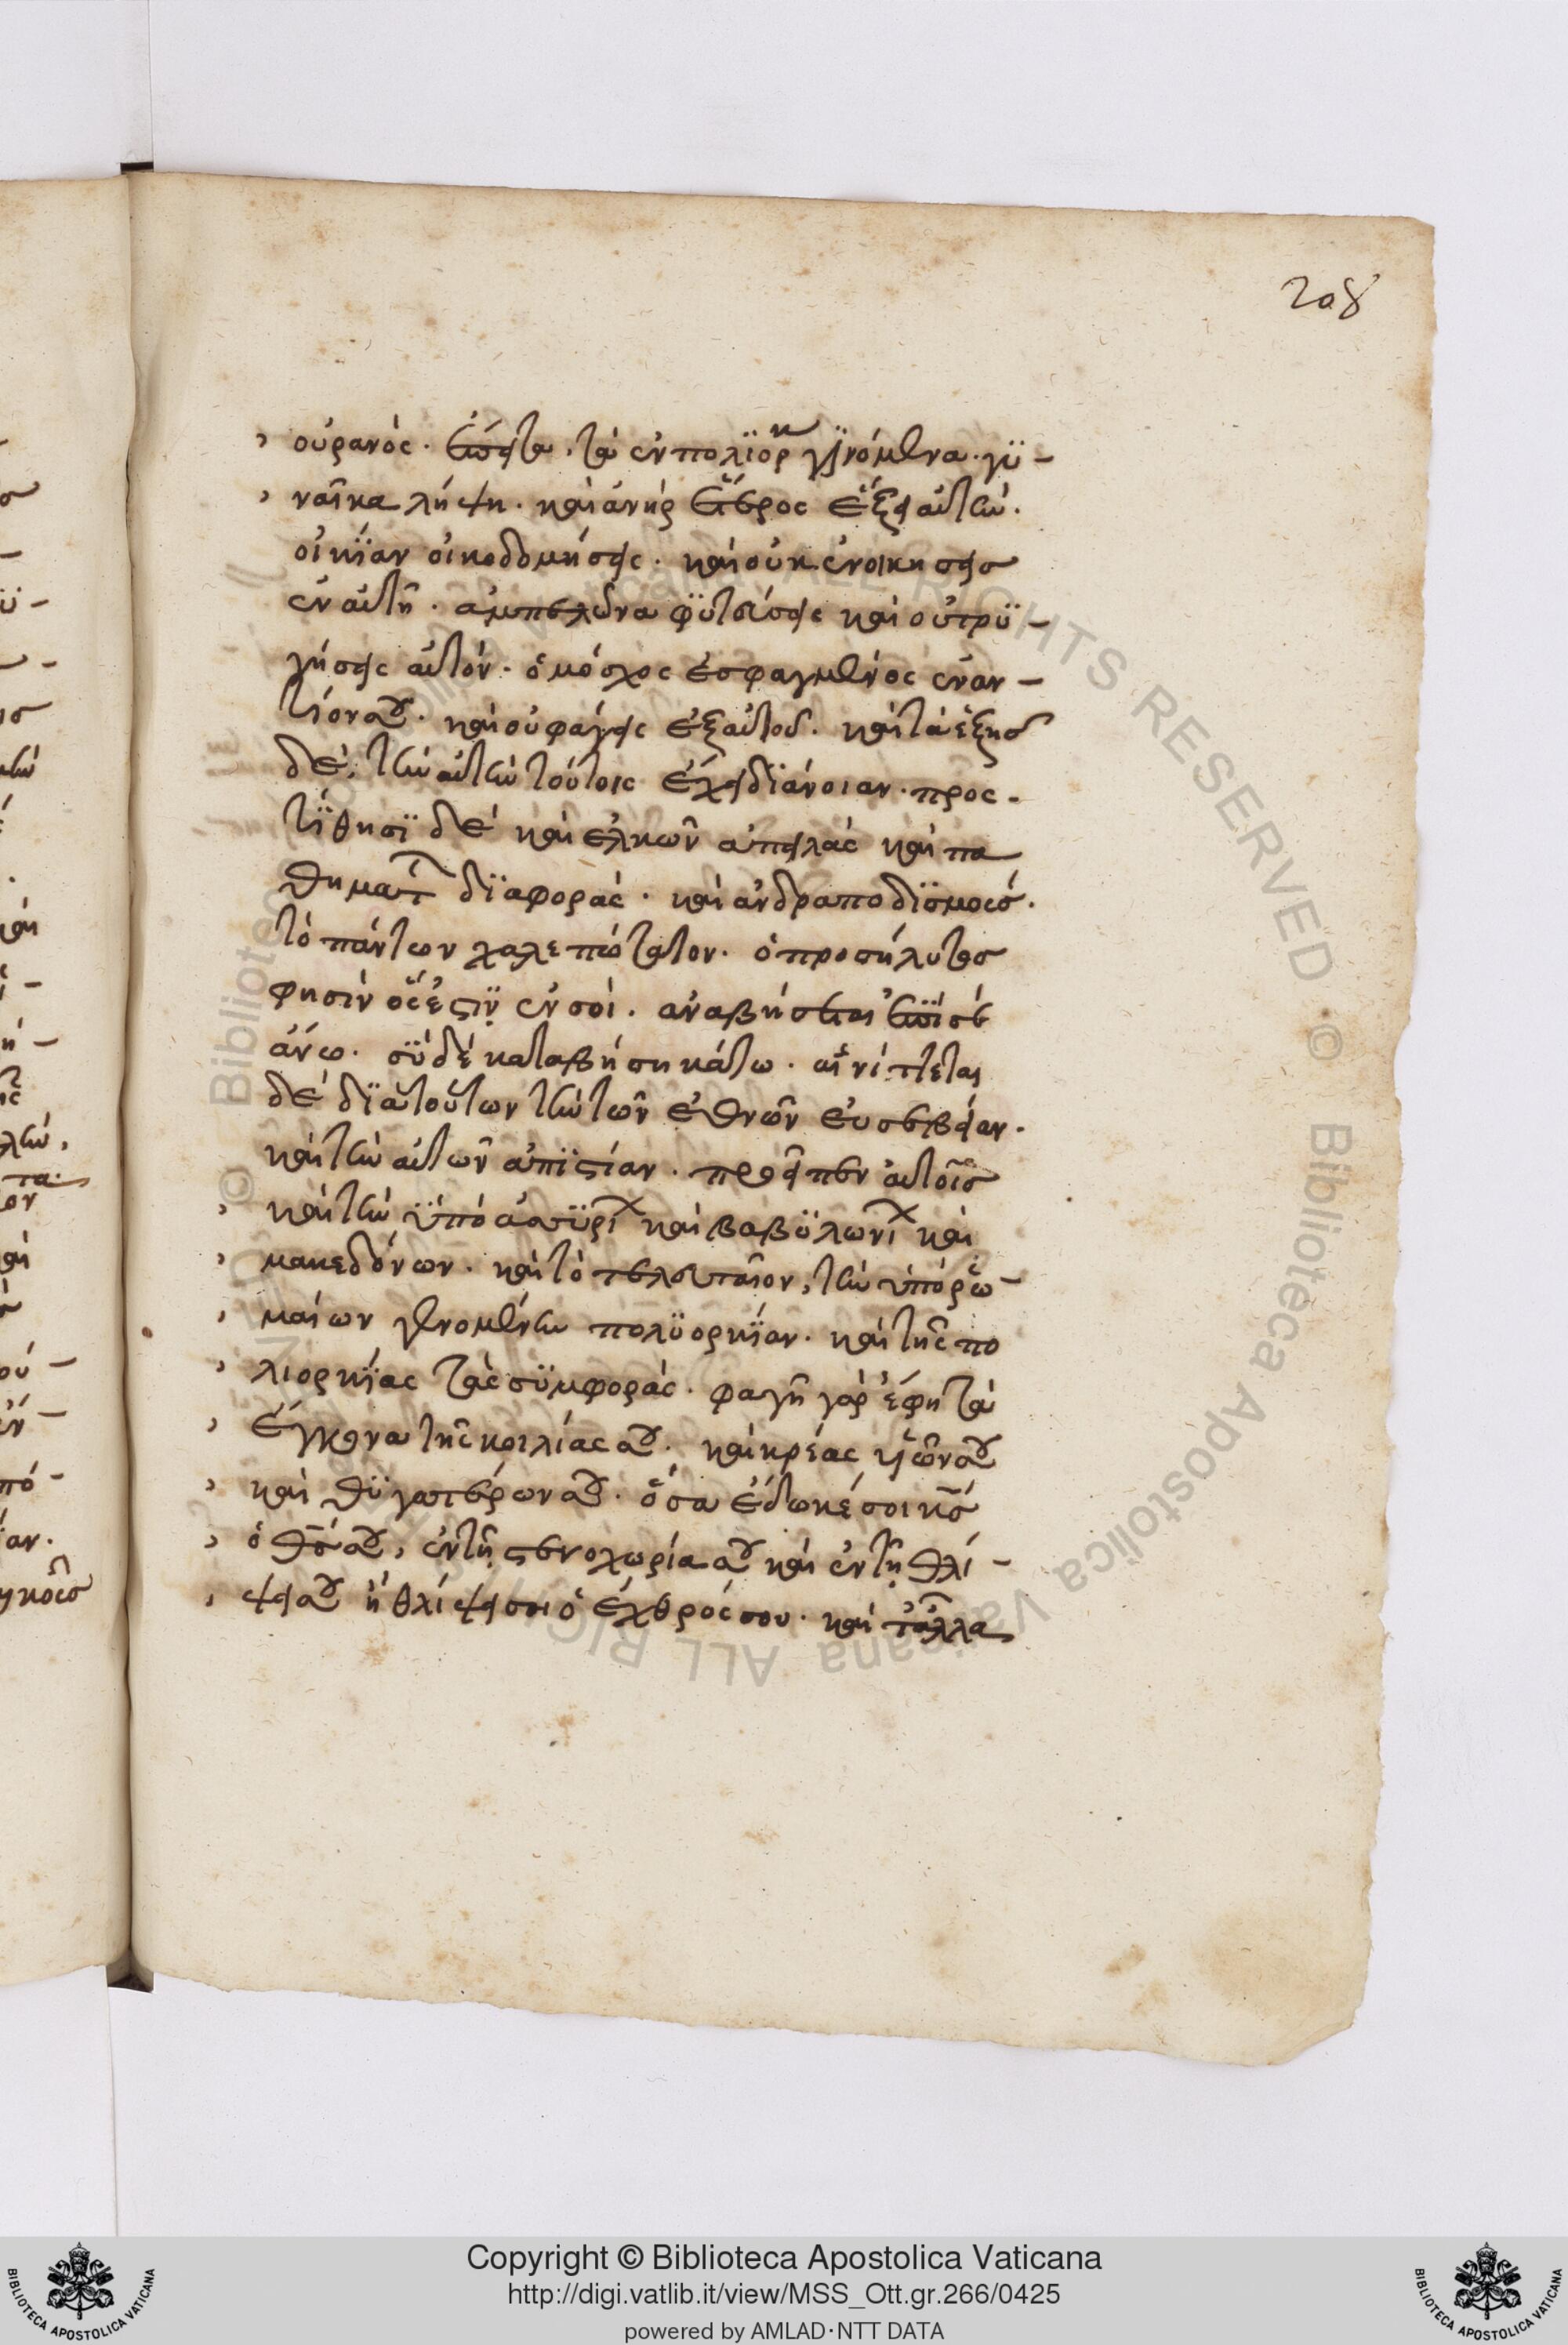 208
οὐρανός. ἔπειτα, τὰ ἐν πολϊορκ γϊνόμενα. γϋ-
ναῖκα λήψη. καὶ ἀνὴρ ἕτερος ἕξει αὐτήν.
οἰκΐαν οἰκοδομήσεις. καὶ οὐκ ἐνοικησεισ
ἐν αὐτῆ. ἀμπελῶνα φϋτεύσεις καὶ οὐ τρϋ-
γήσεις αὐτόν. ὁ μόσχος ἐσφαγμένος ἐναν-
τίον σου. καὶ οὐ φάγεις ἐξ αὐτοῦ. καὶ τὰ ἑξῆσ
δὲ, τὴν αὐτὴν τούτοις ἔχει δϊάνοιαν. προς-
τΐθησϊ δὲ καὶ ἑλκῶν ἀπειλὰς καὶ πα
θηματ δϊαφοράς. καὶ ἀνδραποδϊσμούσ.
τὸ πάντων χαλεπώτατον. ὁ προσήλυτοσ
φησὶν ὅς ἐστϊν ἐν σοὶ. ἀναβήσεται ἐπϊ σὲ
ἄνω. σϋ δὲ καταβήση κάτω. αἰνίττεται
δὲ δϊὰ τούτων τὴν τῶν ἐθνῶν εὐσέβειαν.
καὶ τὴν αὐτῶν ἀπϊστίαν. προεῖπεν αὐτοῖσ
καὶ τὴν ϋπὸ ἀσσϋρΐ καὶ βαβϋλωνΐ καὶ
μακεδόνων. καὶ τὸ τελευταῖον, τὴν ὑπὸ ῥω-
μαίων γενομένην πολϋορκΐαν. καὶ τῆς πο
λιορκΐας τὰς σϋμφοράς. φαγῆ γὰρ ἔφη τὰ
ἔγκονα τῆς κοιλίας σου. καὶ κρέας υἱῶν σου
καὶ θϋγατέρων σου. ὅσα ἔδωκέ σοι κσ
ὁ θσ σου, ἐν τῆ στενοχωρία σου καὶ ἐν τῆ θλί-
ψει σου ἧ θλίψει σοι ὁ ἐχθρός σου. καὶ τἄλλα
Copyright © Biblioteca Apostolica Vaticana
http://digi.vatlib.it/view/MSS_Ott.gr.266/0425
powered by AMLAD·NTT DATA
BIBLIOTECA APOSTOLICA VATICANA
BIBLIOTECA APOSTOLICA VATICANA